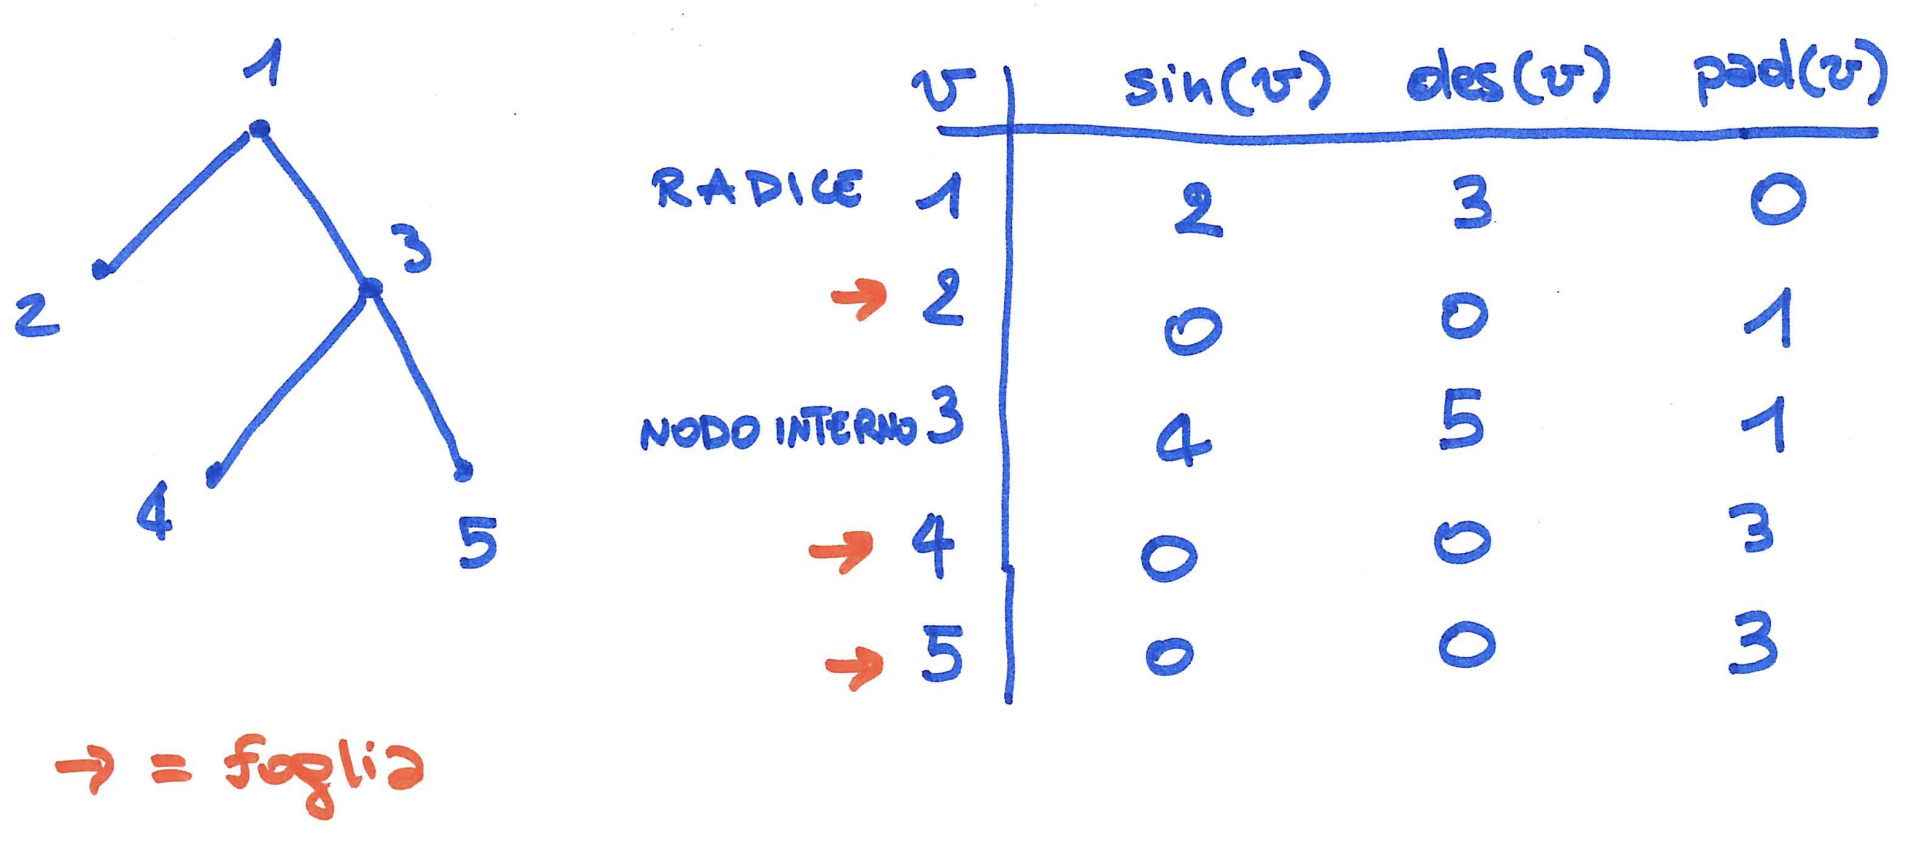 1
2
3
4
5
v sin(v) des(v) pad(v)
RADICE 1 2 3 0
→ 2 0 0 1
NODO INTERNO 3 4 5 1
→ 4 0 0 3
→ 5 0 0 3
→ = foglia